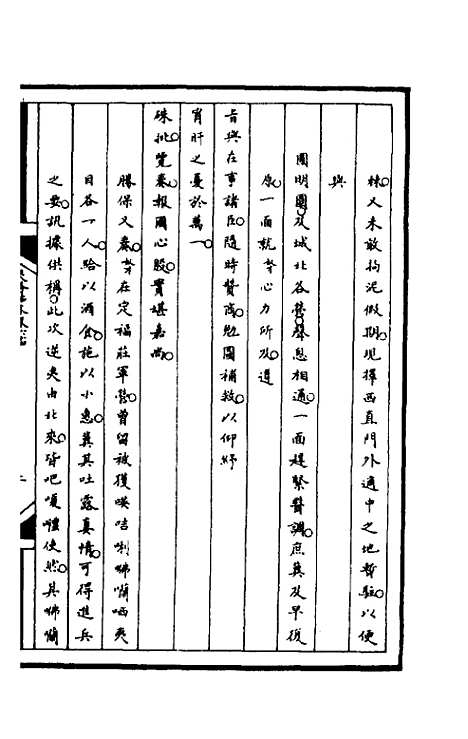 林又未敢拘泥假期現擇西直門外適中之地暫駐以便
與
圓明園及城北各營聲息相通一面趕緊醫調庶冀及早復
原一面就奴才心力所及遵
旨與在事諸臣隨時贊商勉圖補救以仰紓
宵旰之憂於萬一
硃批覽奏報國心殷實堪嘉尚
勝保又奏奴才在定福莊軍營曾留被獲暎咭唎咈囒哂夷
目各一人飴以酒食施以小惠冀其吐露真情可得進兵
之要訊據供稱此次逆夷由北來皆吧嗄嚏使然其咈囒